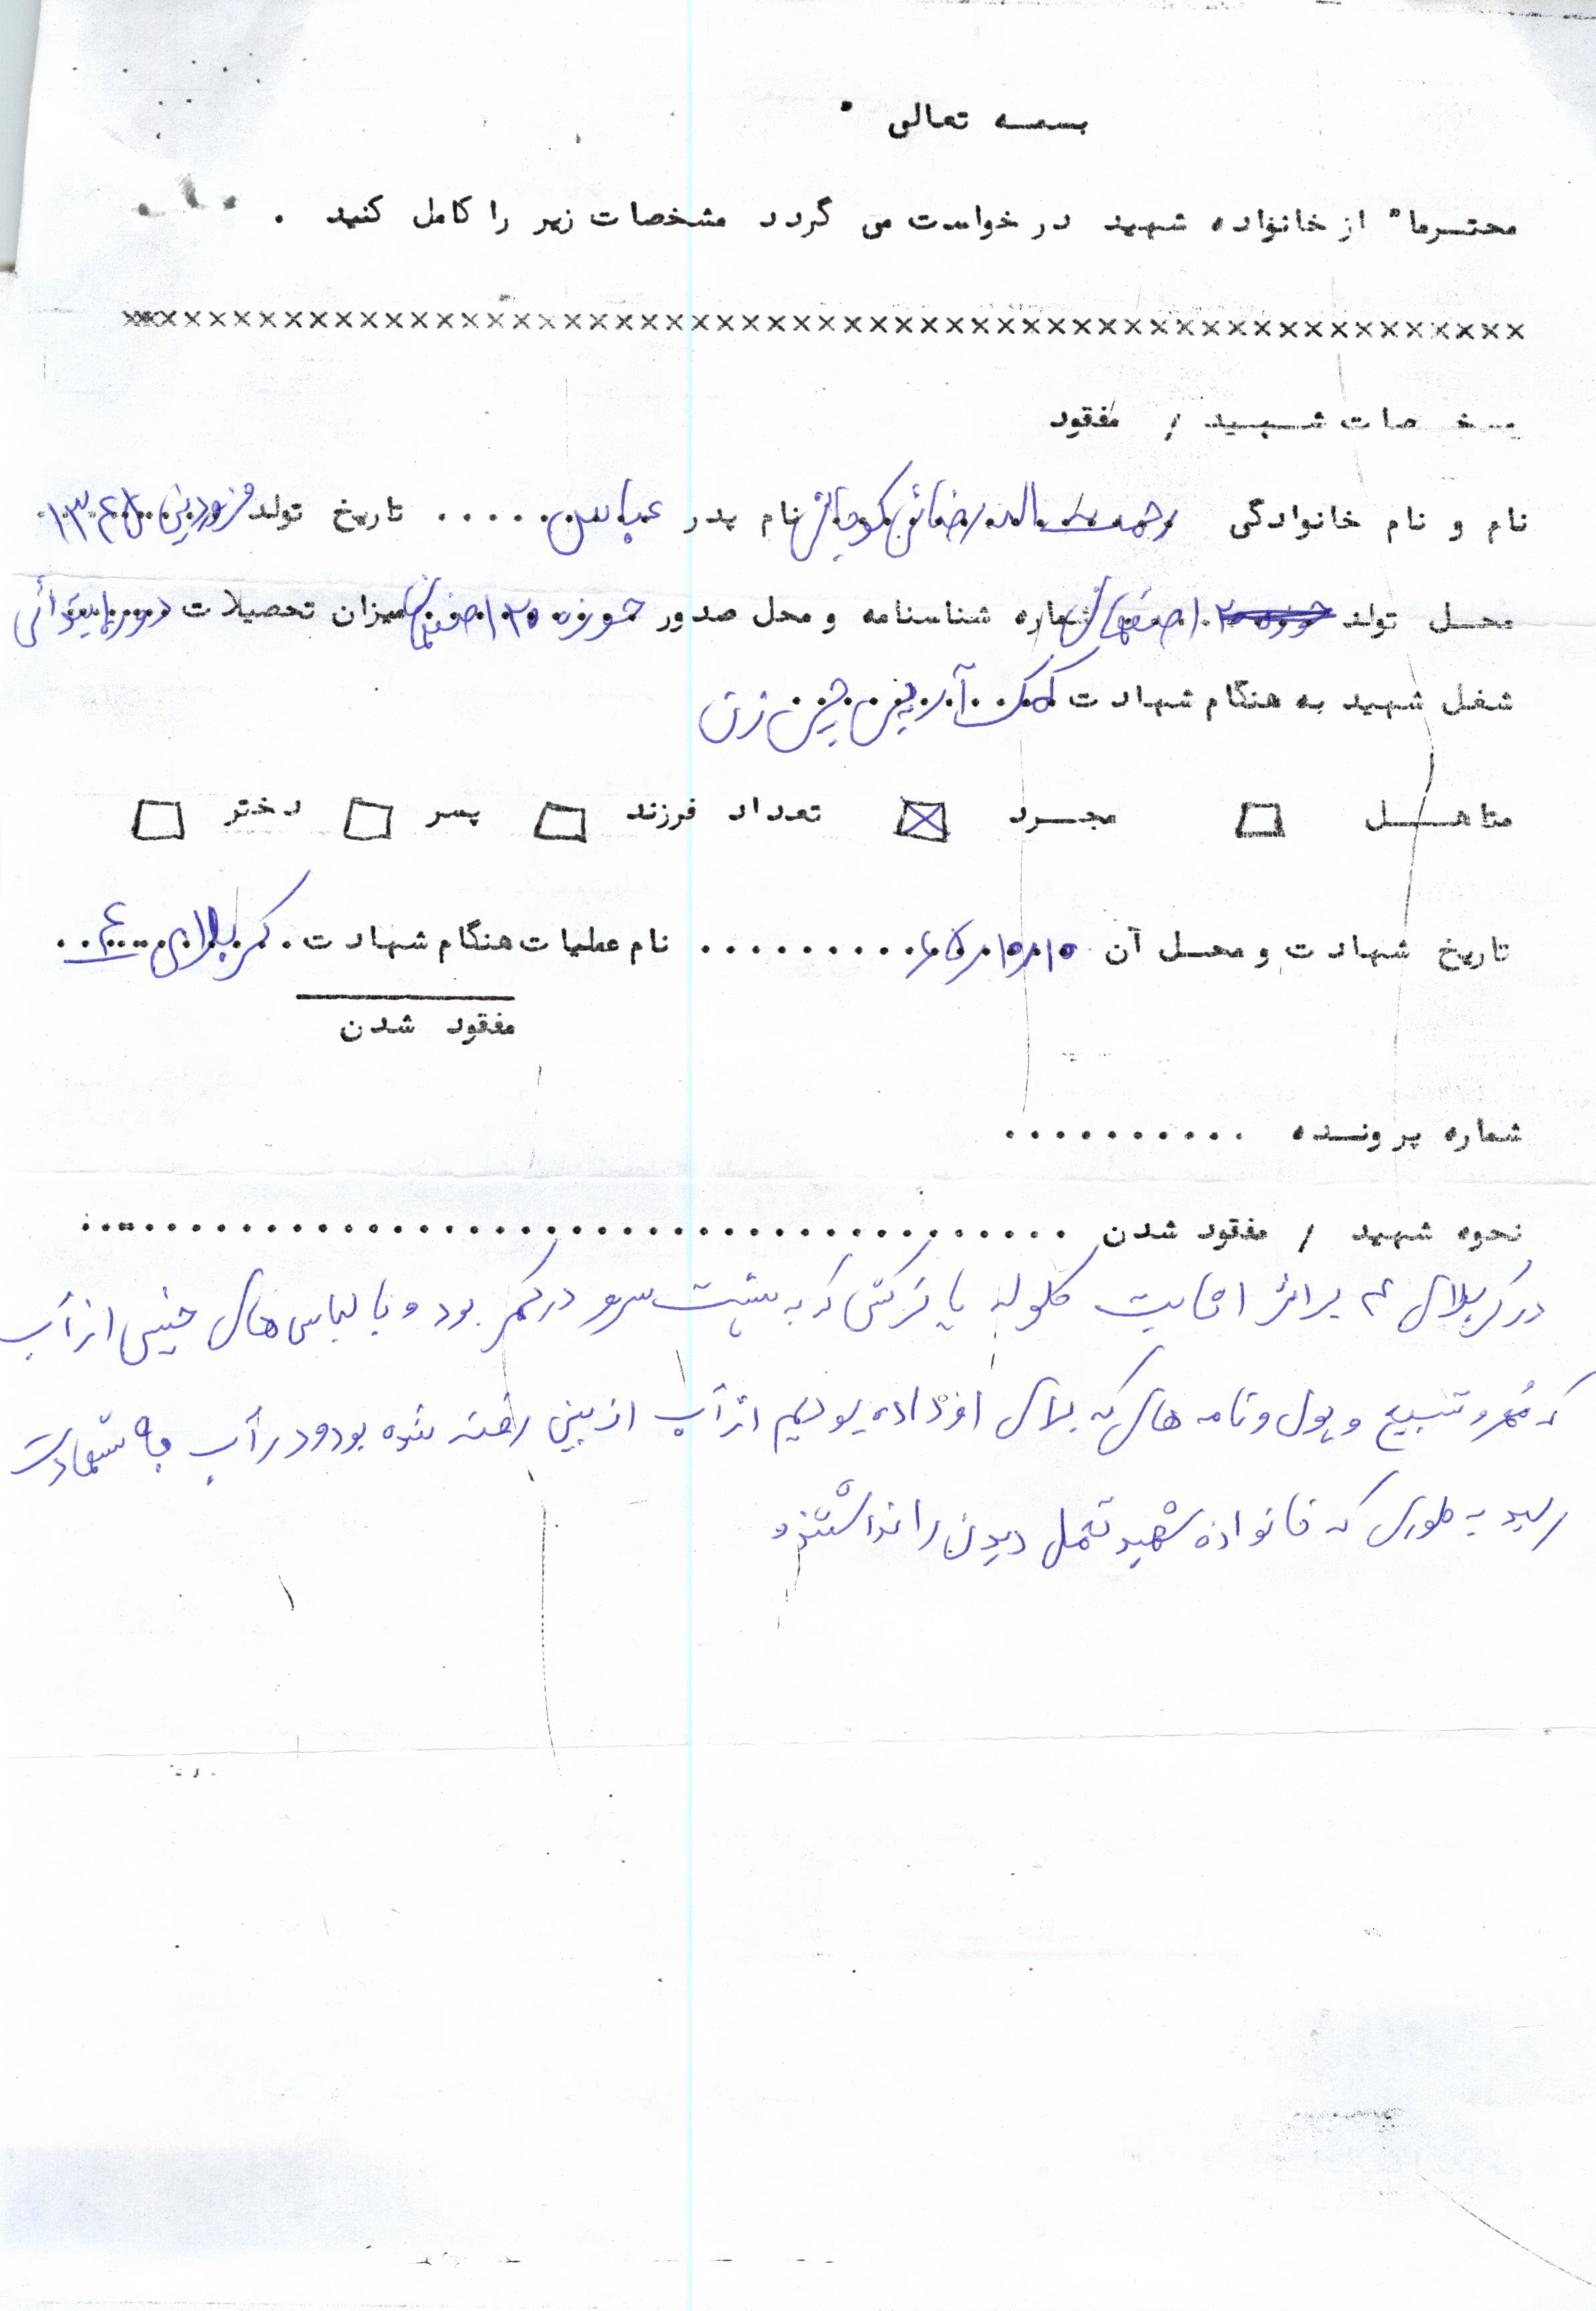 بسمه تعالی
محترما" از خانواده شهید درخواست می گردد مشخصات زیر را کامل کنید .
××××××××××××××××××××××××××××××××××××××××××××××××××××××××
مشخصات شهید / مفقود
نام و نام خانوادگی رحمت اله رضائی کوجانی نام پدر عباس ..... تاریخ تولد فرودین
محل تولد اصفهان شماره شناسنامه و محل صدور حوزه ۲ اصفهان میزان تحصیلات دوم راهنمائی
شغل شهید به هنگام شهادت کمک آرپی جی زن
متاهل ☐ مجرد ☒ تعداد فرزند ☐ پسر ☐ دختر ☐
تاریخ شهادت و محل آن ......... نام عملیات هنگام شهادت . کربلای ۴ ..
مفقود شدن
شماره پرونده ..........
نحوه شهید / مفقود شدن ..........................................
در کربلای ۴ بر اثر اصابت گلوله یا ترکش که به پشت سر و در کمر بود و با لباس های خیس از آب
که مُهر و تسبیح و پول و نامه های که برای او داده بودیم از آب از بین رفته شده بود و در آب به شهادت
رسید به طوری که خانواده شهید تحمل دیدن را نداشتند